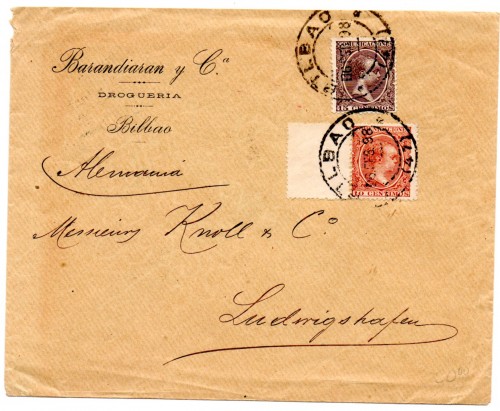 Barandiaran y C.ª
DROGUERIA
Bilbao
Alemania
Messieurs Knoll & Cº
Ludwigshafen
COMUNICACIONES
15 CENTIMOS
BILBAO
98
10 CENTIMOS
BILBAO
98